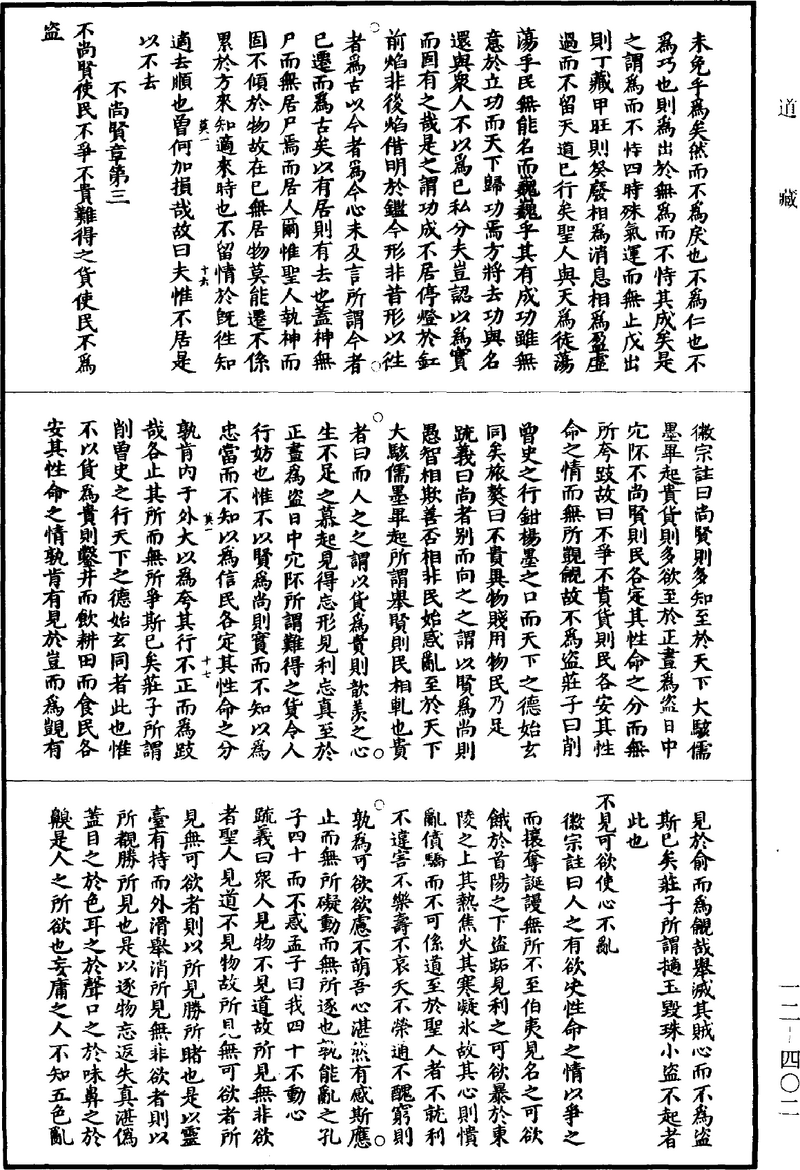 道藏
一二—四〇二
未免乎為矣然而不為戾也不為仁也不
為巧也則為出於無為而不恃其成矣是
之謂為而不恃四時殊氣運而無止戊出
則丁藏甲旺則癸廢相為消息相為盈虛
過而不留天道已行矣聖人與天為徒蕩
蕩乎民無能名而巍巍乎其有成功雖無
意於立功而天下歸功焉方將去功與名
還與衆人不以為已私分夫豈認以為實
而固有之哉是之謂功成不居停燈於缸
前焰非後焰借明於鑑今形非昔形以往
者為古以今者為今心未及言所謂今者
已遷而為古矣以有居則有去也蓋神無
尸而無居尸焉而居人爾惟聖人執神而
固不傾於物故在已無居物莫能遷不係
累於方來知適來時也不留情於旣往知
莫一
十六
適去順也曾何加損哉故曰夫惟不居是
以不去
不尚賢章第三
不尚賢使民不爭不貴難得之貨使民不為
盜
徽宗註曰尚賢則多知至於天下大駭儒
墨畢起貴貨則多欲至於正晝為盜日中
穴阫不尚賢則民各定其性命之分而無
所夸跂故曰不爭不貴貨則民各安其性
命之情而無所覬覦故不為盜莊子曰削
曾史之行鉗楊墨之口而天下之德始玄
同矣旅獒曰不貴異物賤用物民乃足
疏義曰尚者別而向之之謂以賢為尚則
愚智相欺善否相非民始惑亂至於天下
大駭儒墨畢起所謂舉賢則民相軋也貴
者曰而人之之謂以貨為貴則歆羨之心
生不足之慕起見得忘形見利忘真至於
正晝為盜日中穴阫所謂難得之貨令人
行妨也惟不以賢為尚則實而不知以為
忠當而不知以為信民各定其性命之分
孰肯內于外大以為夸其行不正而為跂
莫一
十七
哉各止其所而無所爭斯已矣莊子所謂
削曾史之行天下之德始玄同者此也惟
不以貨為貴則鑿井而飲耕田而食民各
安其性命之情孰肯有見於豈而為覬有
見於俞而為覦哉舉滅其賊心而不為盜
斯已矣莊子所謂擿玉毀珠小盜不起者
此也
不見可欲使心不亂
徽宗註曰人之有欲決性命之情以爭之
而攘奪誕謾無所不至伯夷見名之可欲
餓於首陽之下盜跖見利之可欲暴於東
陵之上其熱焦火其寒凝氷故其心則憒
亂僨驕而不可係道至於聖人者不就利
不違害不樂壽不哀夭不榮通不醜窮則
孰為可欲欲慮不萌吾心湛然有感斯應
止而無所礙動而無所逐也孰能亂之孔
子四十而不惑孟子曰我四十不動心
疏義曰衆人見物不見道故所見無非欲
者聖人見道不見物故所見無可欲者所
見無可欲者則以所見勝所睹也是以靈
臺有持而外滑舉消所見無非欲者則以
所觀勝所見也是以逐物忘返失真湛僞
蓋目之於色耳之於聲口之於味鼻之於
齅是人之所欲也妄庸之人不知五色亂